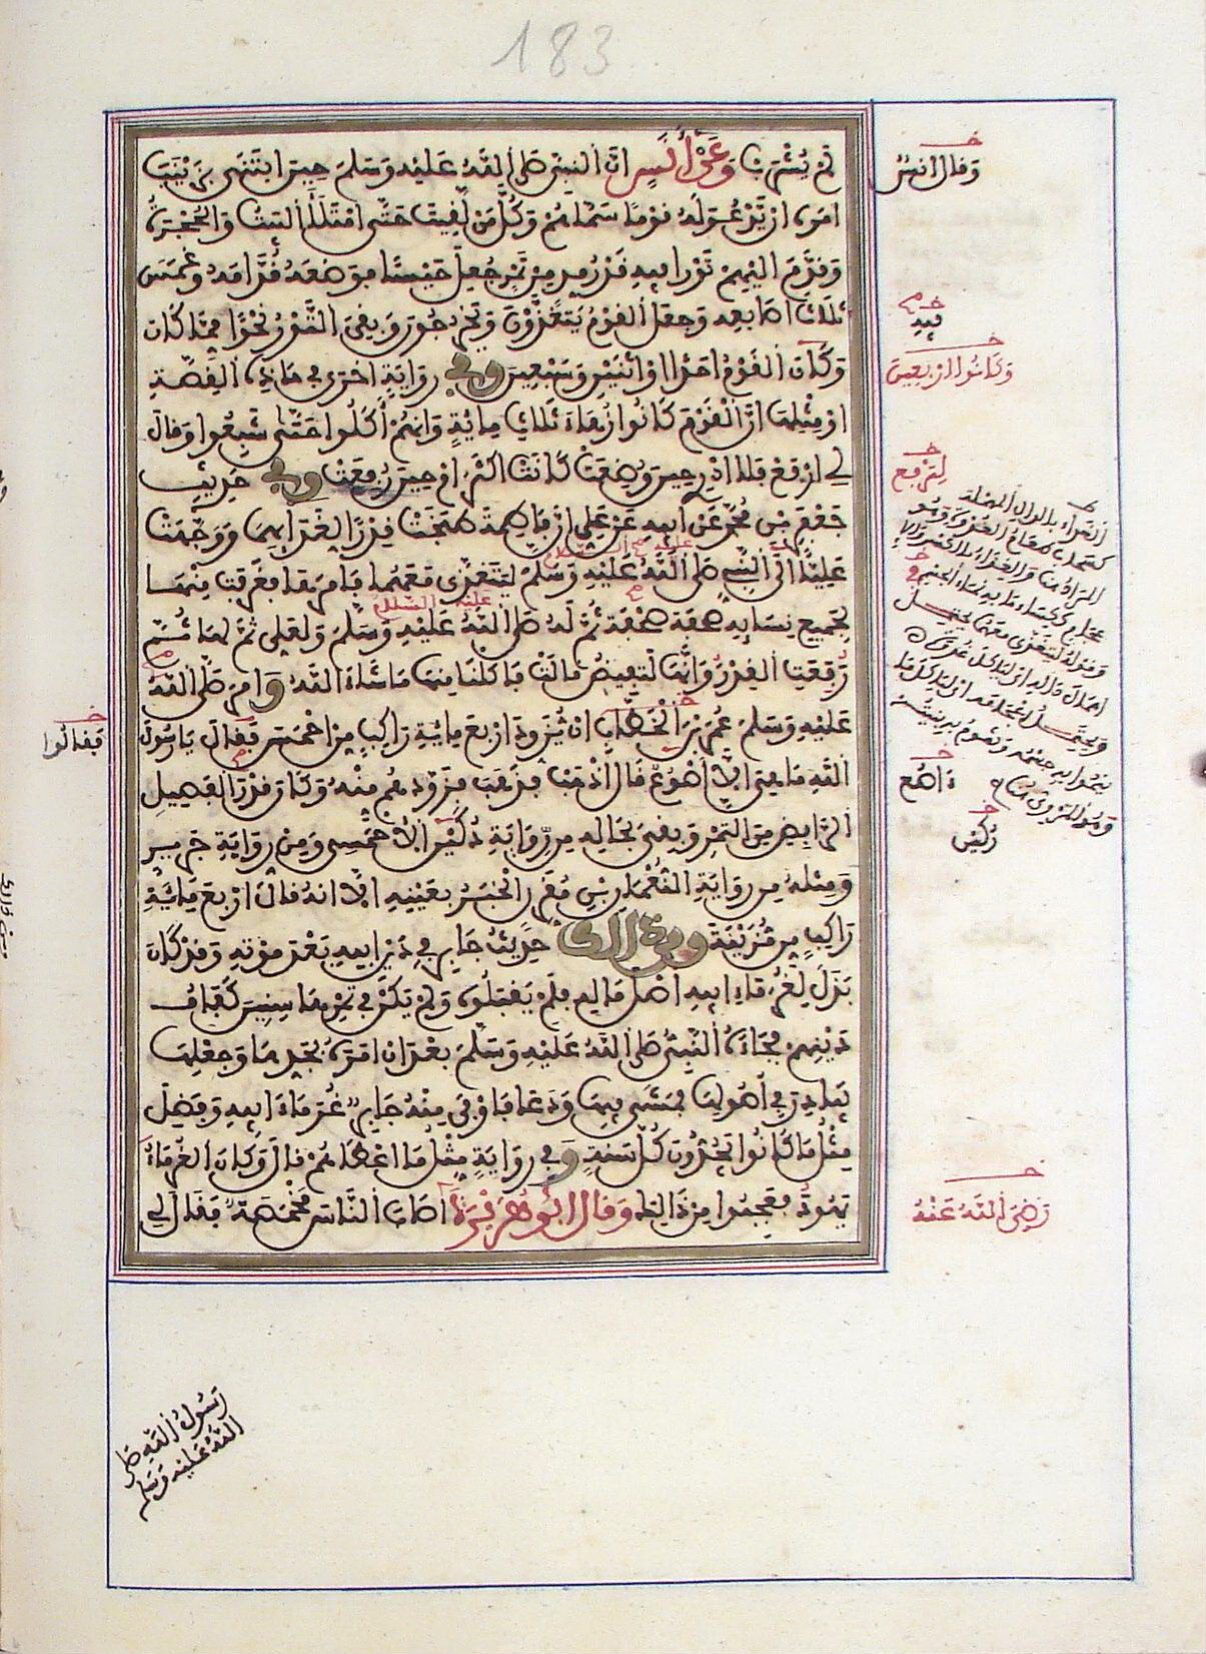 183
لم يشرب وعن أنس ان النبي صلى الله عليه وسلم حين ابتنى بزينب
امره ان يدعو له قوما سماهم وكل من لقيت حتى امتلأ البيت والحجرة
وقدم اليهم تورا فيه قدر مد من تمر جعل حيسا فوضعه قدامه وغمس
ثلاث اصابعه وجعل القوم يتغدون ويخرجون وبقي التور نحوا مما كان
وكان القوم احدا او اثنين وسبعين وفي رواية اخرى في هذه القصة
او مثلها ان القوم كانوا زهاء ثلاث مائة وانهم أكلوا حتى شبعوا وقال
لي ارفع فلا ادري حين وضعت كانت اكثر ام حين رفعت وفي حديث
جعفر بن محمد عن أبيه عن علي ان فاطمة طبخت قدرا لغدائهما ووجهت
عليا الى النبي صلى الله عليه وسلم ليتغدى معهما فامرها فغرفت منها
لجميع نسايه صحفة صحفة ثم له صلى الله عليه وسلم ولعلي ثم لها ثم
رفعت القدر وانها لتفيض قالت فاكلنا منها ما شاء الله وامر صلى الله
عليه وسلم عمر بن الخطاب ان يزود اربع مائة راكب من احمس فقال يا رسول
الله ما هي الا أصوع قال اذهب فذهب فزودهم منه وكان قدر الفصيل
الرابض من التمر وبقي بحاله من رواية دكين الاحمسي ومن رواية جرير
ومثله من رواية النعمان بن مقرن الخبر بعينه الا انه قال اربع مائة
راكب من مزينة ومن ذلك حديث جابر في دين ابيه بعد موته وقد كان
بذل لغرماء ابيه اصل ماله فلم يقبلوه ولم يكن في ثمرها سنين كفاف
دينهم فجاءه النبي صلى الله عليه وسلم بعد ان امره بجدها وجعلها
بيادر في أصولها فمشى فيها ودعا فاوفى منه جابر غرماء ابيه وفضل
مثل ما كانوا يجدون كل سنة وفي رواية مثل ما اعطاهم قال وكان الغرماء
يهود فعجبوا من ذلك وقال ابو هريرة اصاب الناس مخمصة فقال لي
وقال انس
فيه
وكانوا اربعين
لترفع
عليه السلام
عليه السلام
فقالوا
اصع
دكين
رضي الله عنه
رسول الله صلى
الله عليه وسلم